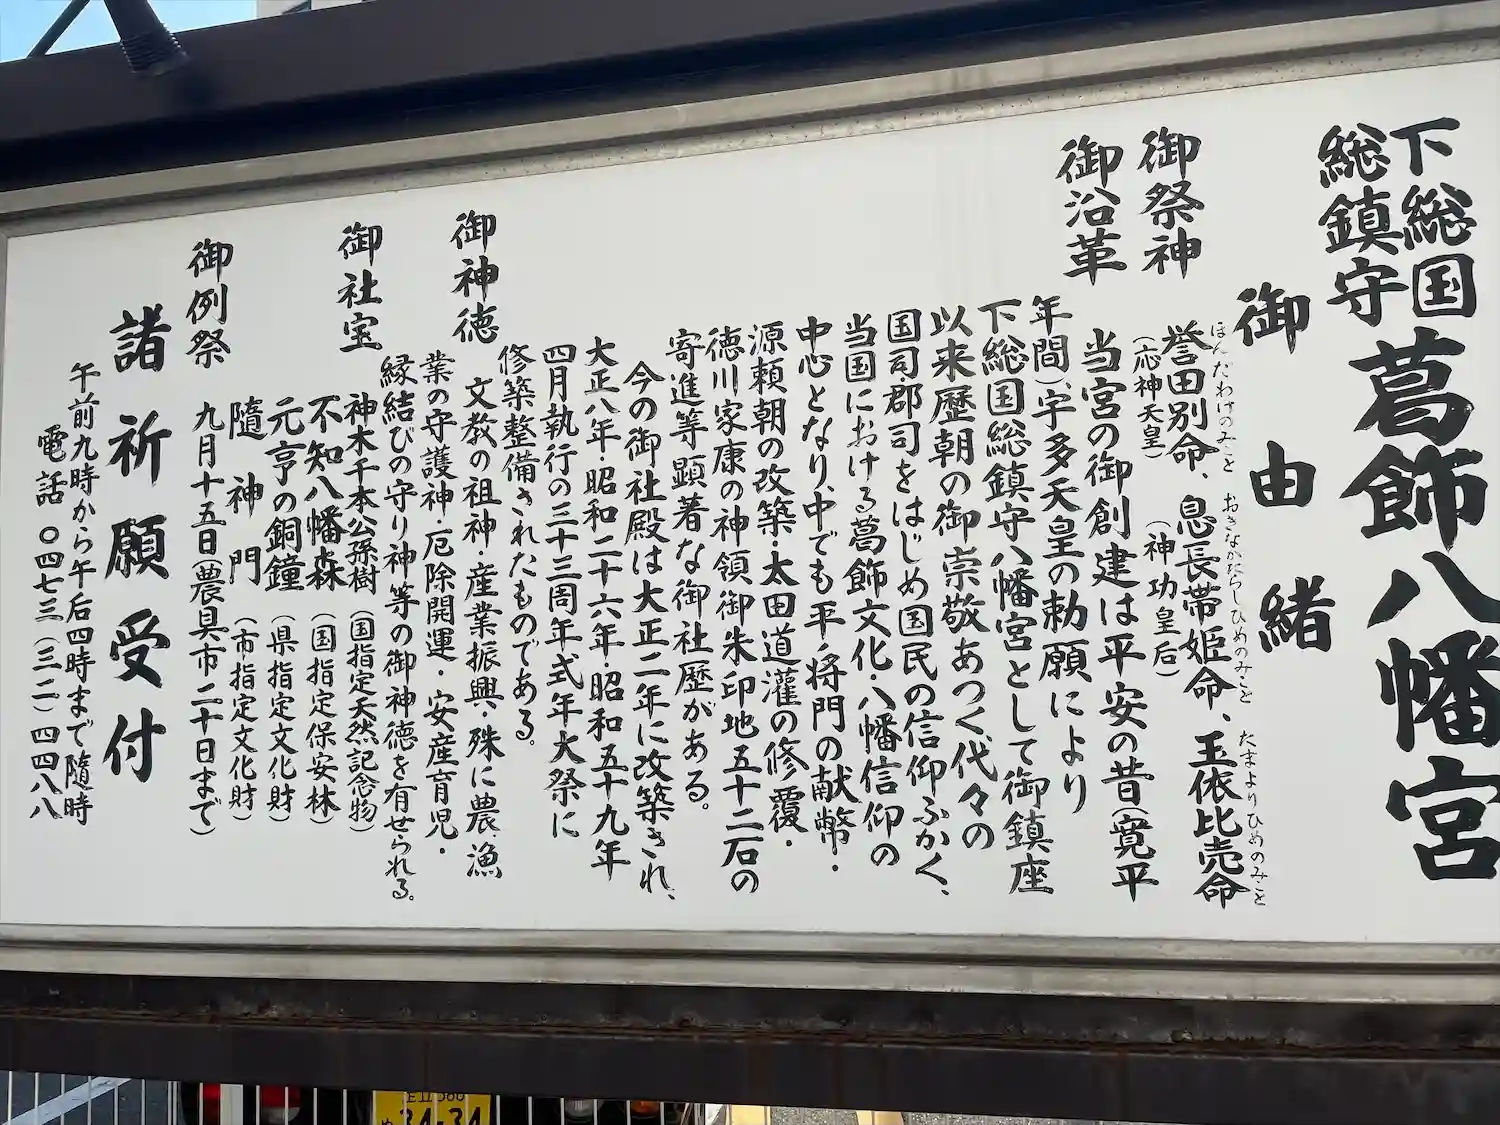 下総国
総鎮守
葛飾八幡宮
御由緒
御祭神
ほんだわけのみこと
誉田別命、
おきながたらしひめのみこと
息長帯姫命、
たまよりひめのみこと
玉依比売命
(応神天皇)
(神功皇后)
御沿革
当宮の御創建は平安の昔(寛平
年間)、宇多天皇の勅願により
下総国総鎮守八幡宮として御鎮座
以来歴朝の御崇敬あつく、代々の
国司・郡司をはじめ国民の信仰ふかく、
当国における葛飾文化・八幡信仰の
中心となり、中でも平・将門の献幣・
源頼朝の改築・太田道灌の修覆・
徳川家康の神領御朱印地五十二石の
寄進等顕著な御社歴がある。
今の御社殿は大正二年に改築され、
大正八年・昭和二十六年・昭和五十九年
四月執行の三十三周年式年大祭に
修築整備されたものである。
御神徳
文教の祖神・産業振興・殊に農漁
業の守護神・厄除開運・安産育児・
縁結びの守り神等の御神徳を有せられる。
御社宝
神木千本公孫樹(国指定天然記念物)
不知八幡森(国指定保安林
元亨の銅鐘(県指定文化財)
隨神門(市指定文化財)
御例祭
九月十五日(農具市二十日まで)
諸祈願受付
午前九時から午后四時まで隨時
電話〇四七三(三二)四四八八
34-34